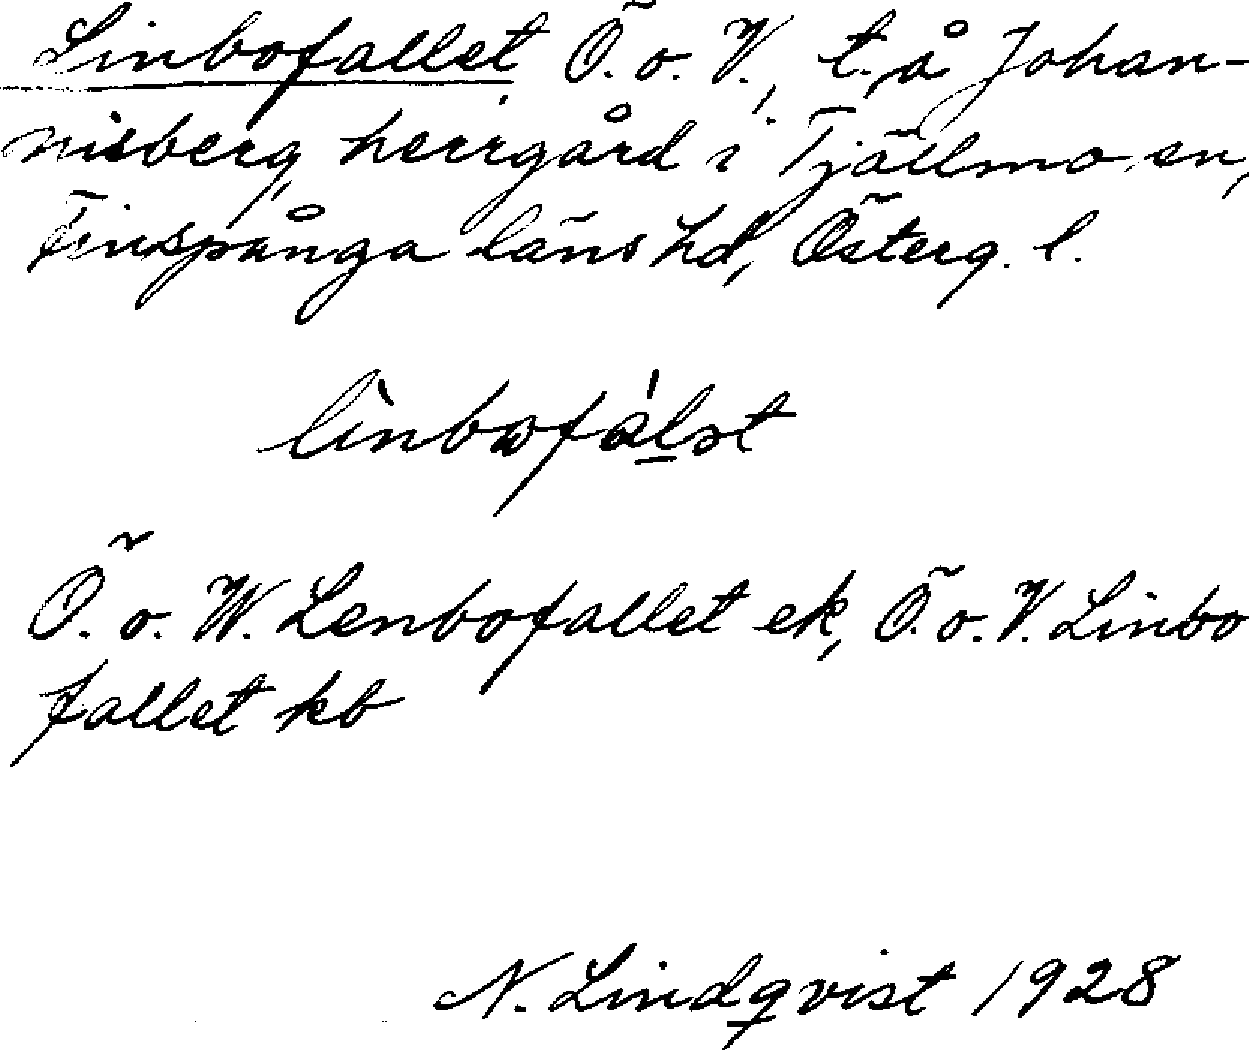 Linbofallet Ö. o. V., t. å Johan-
nisberg herrgård i Tjällmo sn,
Finspånga läns hd, Österg. l.
lìnbωfálət
Ö. o. W. Lenbofallet ek, Ö. o. V. Linbo
fallet kb
N. Lindqvist 1928